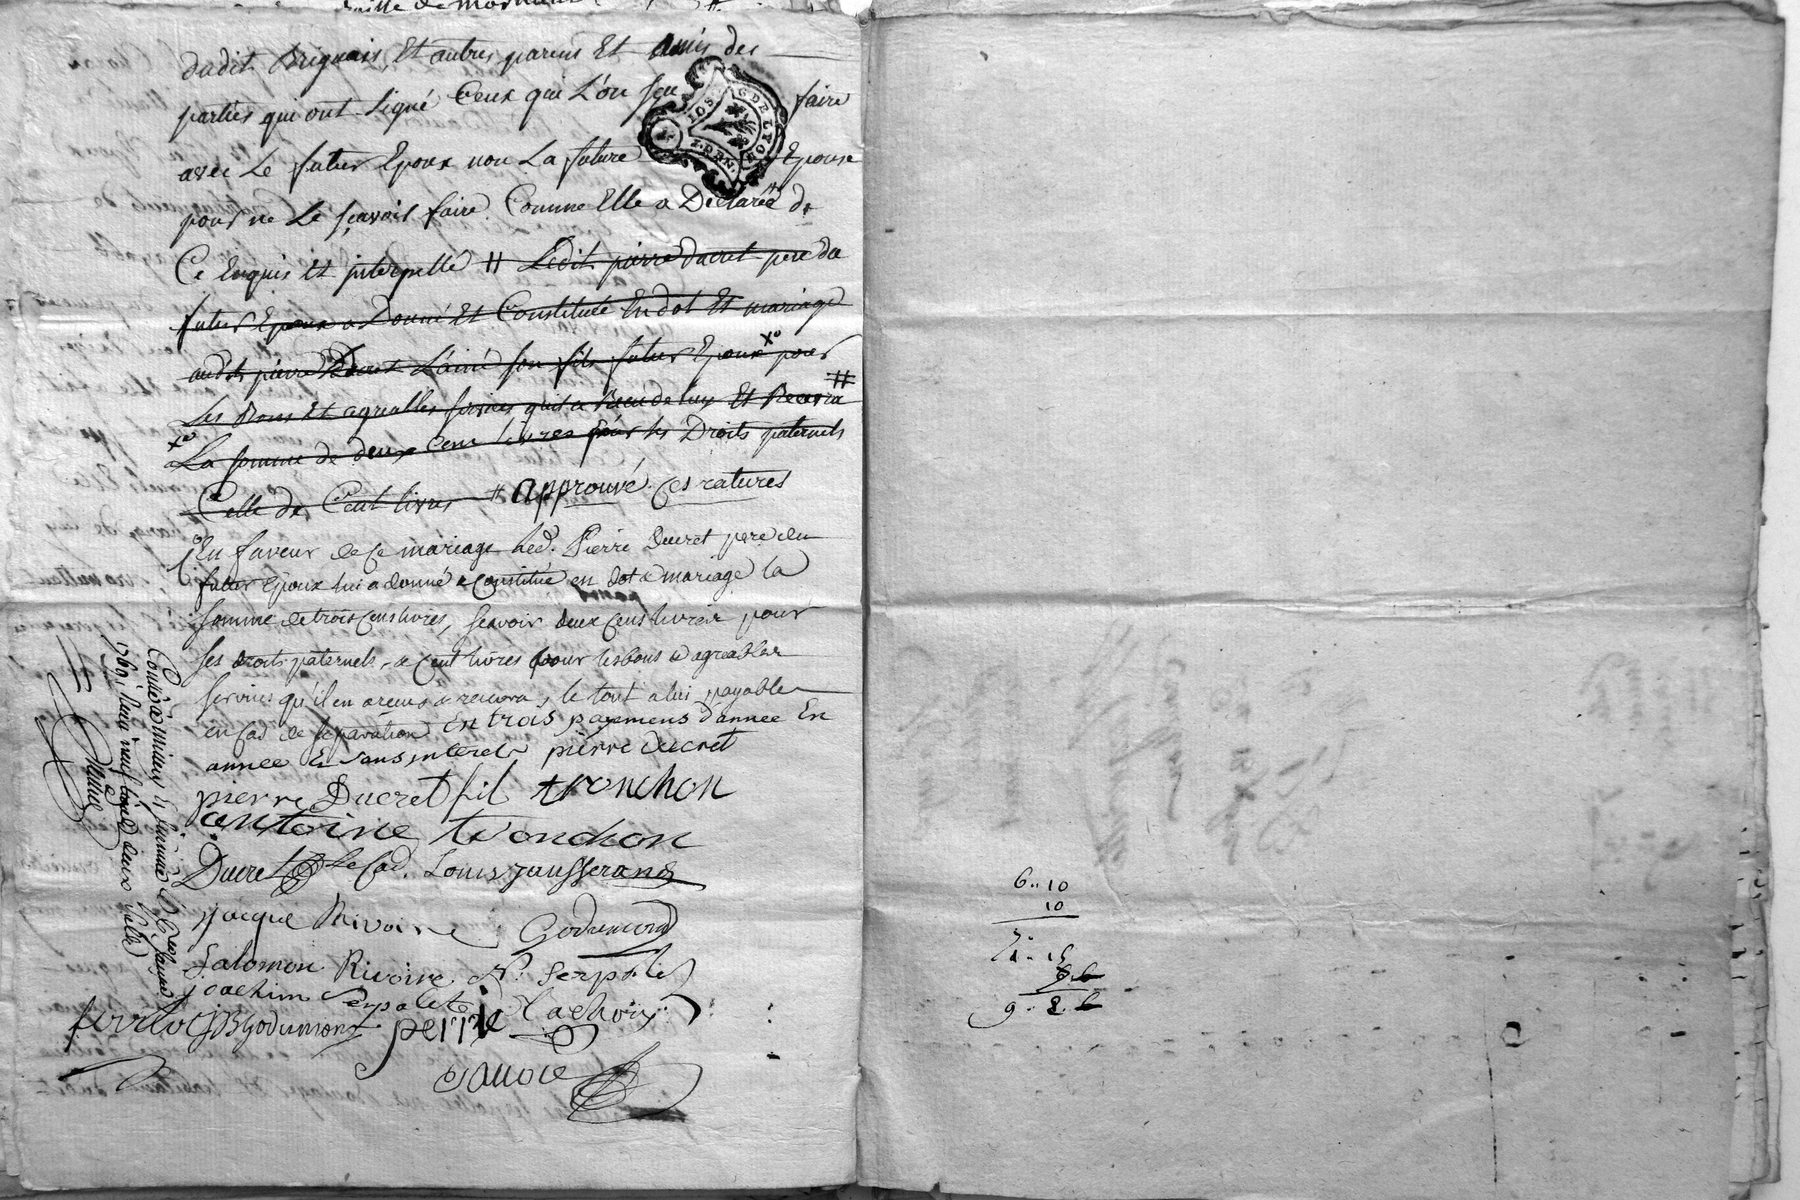 dudit Brignais, Et autres parens Et amis des
parties qui ont signé Ceux qui L'on sçu faire
G DE LYON
10 S.
2. DEN.
avec Le futur Epoux non La future Epouse
pour ne Le sçavoir faire Comme Elle a Déclarée de
Ce Enquis Et interpellé # Ledit pierre Ducret pere du
futur Epoux a Donné Et Constitué En dot Et mariage
audit pierre Ducret L'ainé son fils futur Epoux xo pour
Les Bons Et agreables services qu'il a Receu de luy Et Recevra #
xo La somme de deux Cent livres pour les Droits paternels
Celle de Cent livres # approuvé ces ratures
En faveur de ce mariage led. Pierre Ducret pere du
futur Epoux lui a donné & constitué en dot & mariage la
somme de trois cens livres, scavoir deux cens livres pour
ses droits paternels, & cent livres pour les bons & agreables
services qu'il en a recus & recevra, le tout a lui payable
en cas de separation En trois payemens d'annee En
annee & sans interets pierre ducret
pierre Ducret fil tronchon
antoine tronchon
Ducret Le Cad. Louis jausserand
jacque Rivoire Godumond
Salomon Rivoire Serpolet
joachim Serpolet Lachoix
JB Godumond perre
1769
6.. 10
10
9.. 2. 6